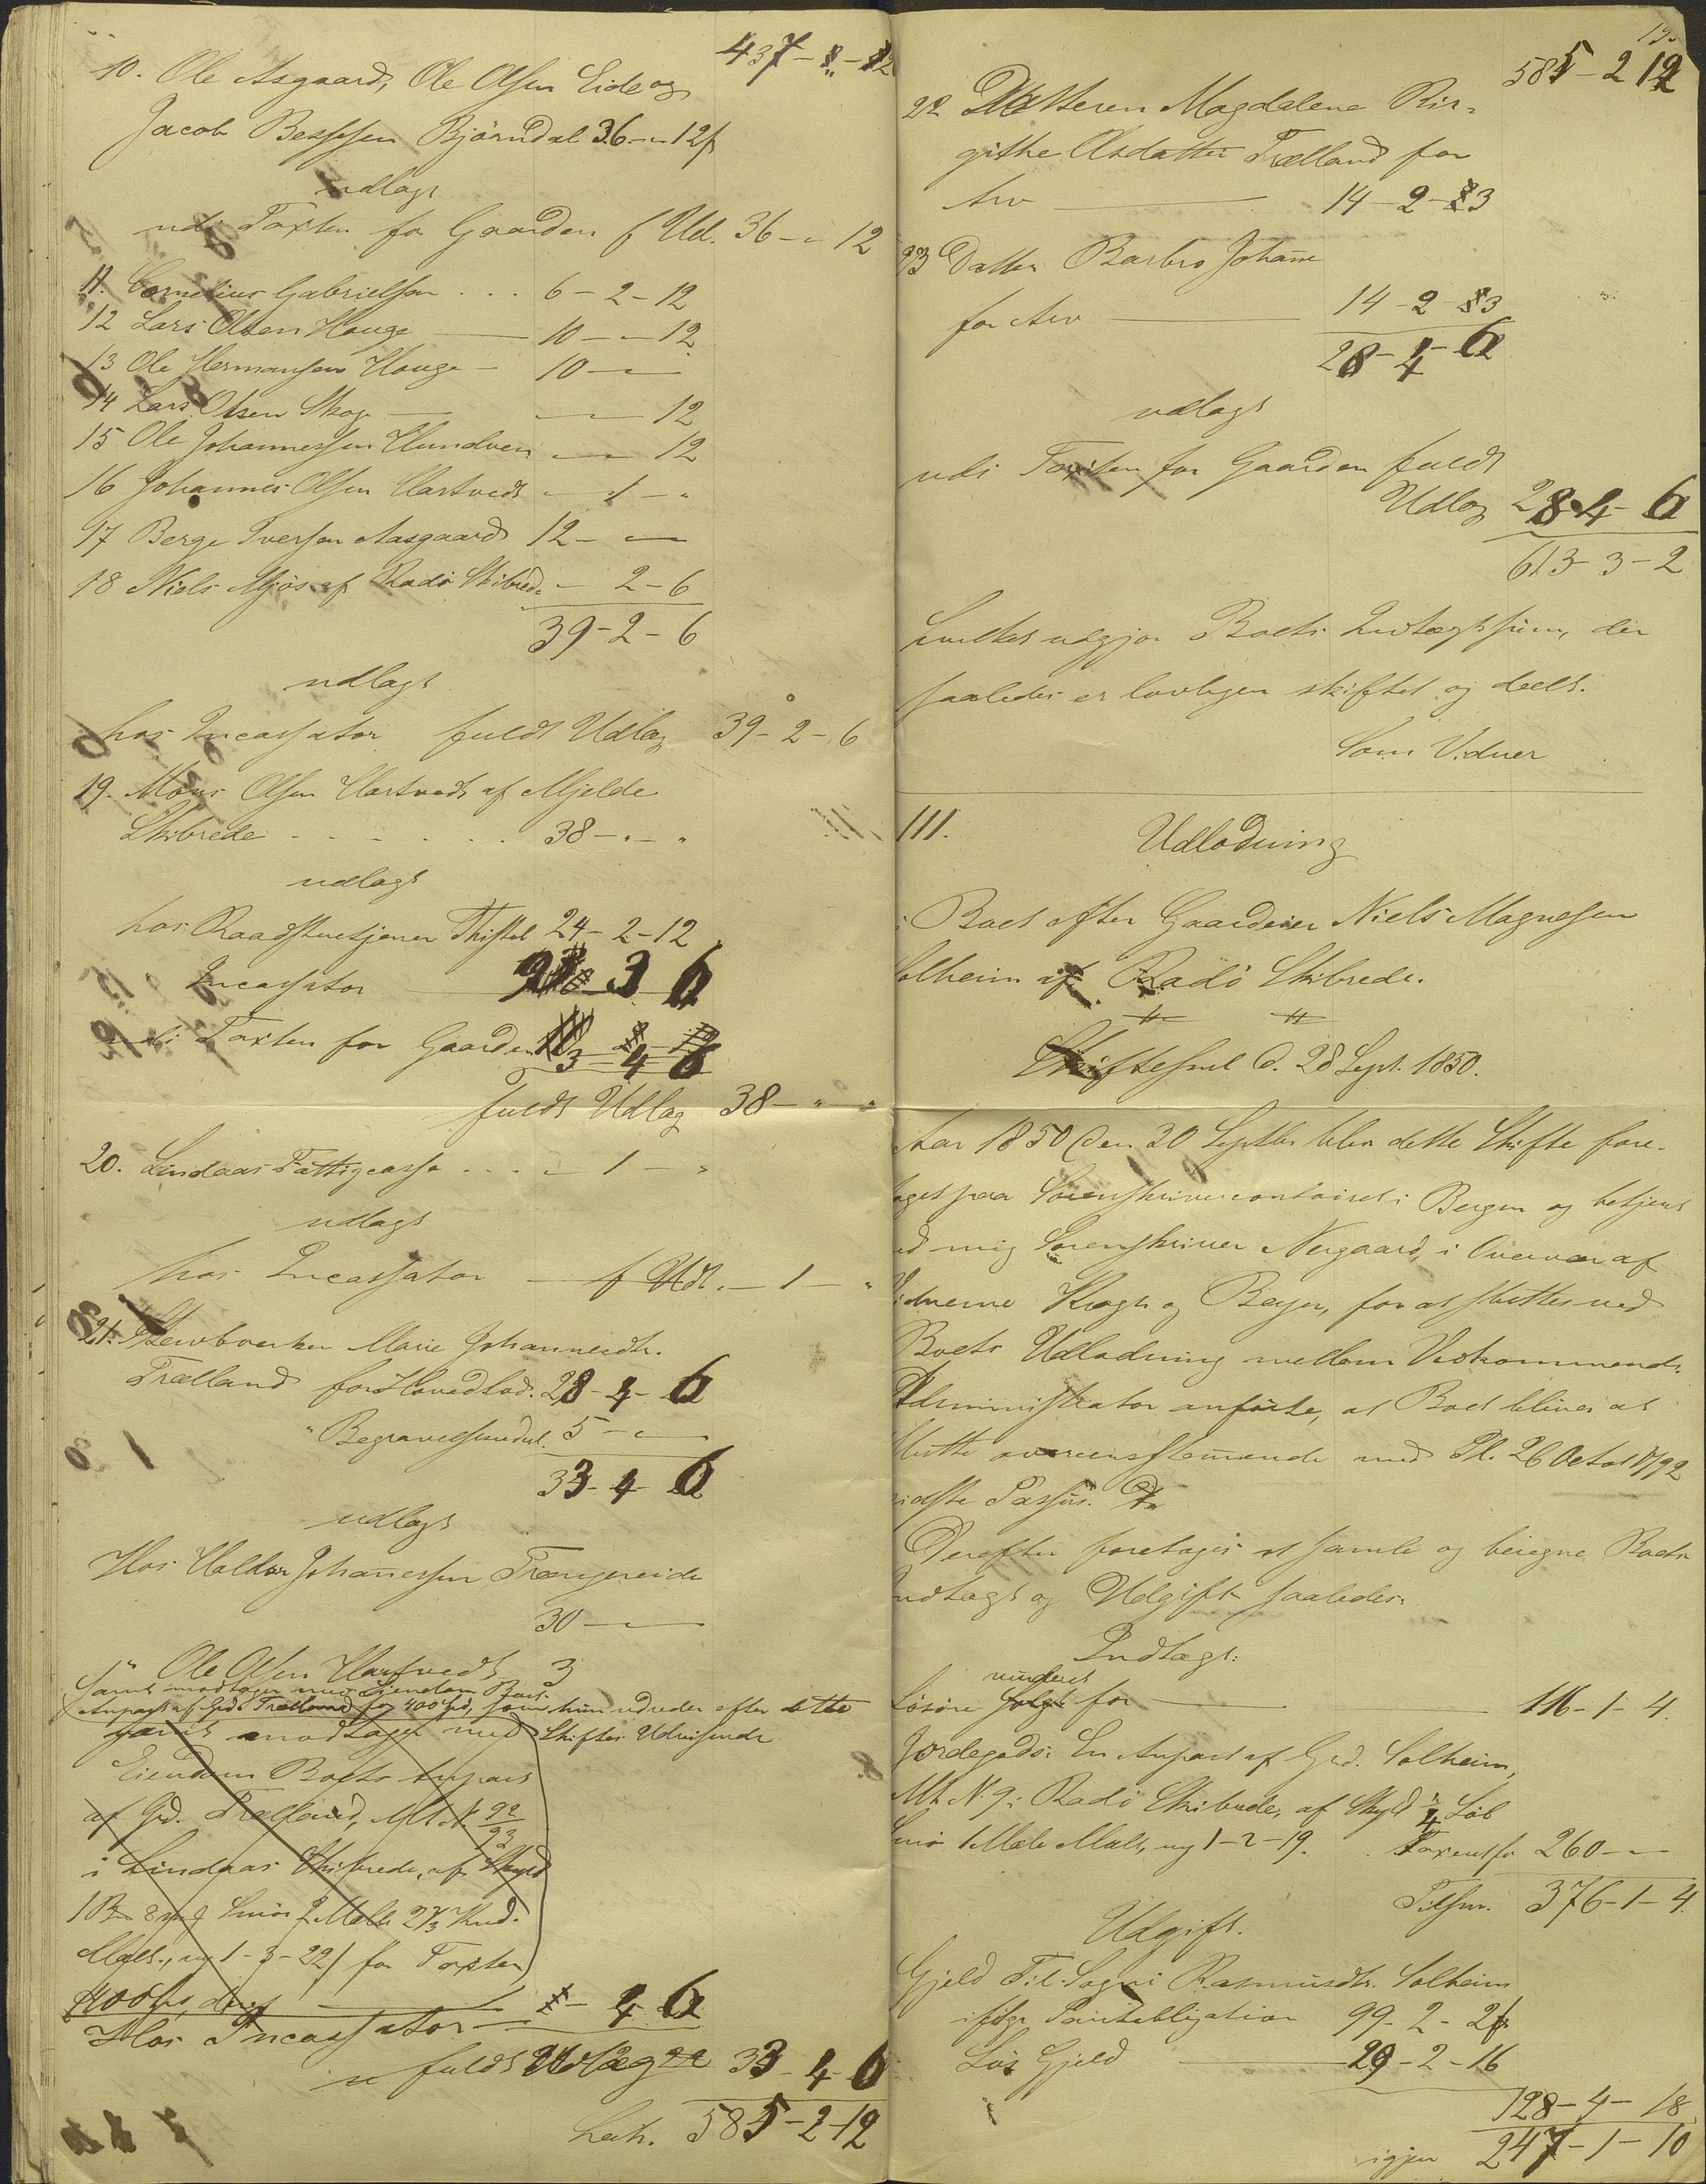 437 - 2 - 12
10. Ole Asgaard, Ole Olsen Eide og
Jacob Bessesen Bjørndal 36 - " - 12 s
udlagt
udi Taxten for Gaarden f Udl. 36 - " - 12
11. Cornelius Gabrielsen . . . 6 - 2 - 12
12 Lars Olsen Hauge — 10 - " - 12
13 Ole Hermansen Hauge — 10 - " -
14 Lars Olsen Skoge — " - 12
15 Ole Johannessen Hundven — " - 12
16 Johannes Olsen Hartvedt - 1 - "
17 Berge Iversen Aasgaard 12 - " -
18 Niels Mjøs af Radø Skibrede - 2 - 6
39 - 2 - 6
udlagt
hos Incassator fuldt Udlæg 39 - 2 - 6
19. Mons Olsen Hartvedt af Mjelde
Skibrede . . . . . 38 - " - "
udlagt
hos Raadstuetjener Thistel 24 - 2 - 12
Incassator 3 6
udi Taxten for Gaarden 3 - 4 - 6
fuldt Udlæg 38 - " - "
20. Lindaas Fattigcasse . . . - 1 - "
udlagt
hos Incassator — f Udl. - 1 - "
21. Stervboenken Marie Johannesdtr.
Trælland for Hovedlod. 28 - 4 - 6
" Begravelsesudst. 5 - " -
33 - 4 - 6
udlagt
Hos Haldor Johannessen Trængereide
30 - " -
" Ole Olsen Hartvedt 3
samt modtager med Eiendom Boets
Anpart af Grd. Trælland for 400 Spd, som hun udreder efter dette
Skiftes Udvisende
samt modtager med
Eiendom Boets Anpart
af Grd. Trælland, Mt. N. 92/93
i Lindaas Skibrede, af Skyld
1 Bpd 8 mk Smør 2 Mæler 2 1/3 Knd.
Malt., ny 1 - 3 - 22 / for Taxten
400 Spd,
Hos Incassator — 4 6
fuldt Udlæg 33 - 4 - 6
Lat. 585 - 2 - 12
585 - 2 12
22 Datteren Magdalene Bir-
githe Olsdatter Trælland for
Arv — 14 - 2 - 3
23 Datter Barbro Johanne
for Arv — 14 - 2 - 3
28 - 4 - 6
udlagt
udi Taxten for Gaarden fuldt
Udlæg 28 - 4 - 6
613 - 3 - 2
hvilket udgjør Boets Indtægtssum, der
saaledes er lovligen skiftet og deelt.
Som Vidner
111.
Udlodning
i Boet efter Gaardeier Niels Magnesen
Solheim af Radø Skibrede.
Skiftesml d. 28 Sept. 1850.
Aar 1850 den 30 Septbr blev dette Skifte fore-
taget paa Sorenskrivercontoiret i Bergen og betjent
ved mig Sorenskriver Nergaard, i Overvær af
Vidnerne Krogh og Beyer, for at sluttes med
Boets Udlodning mellem Vedkommende.
Administrator anførte, at Boet bliver at
slutte overeensstemmende med Pl. 26 Octor 1792
sidste Passus.
Derefter foretages at samle og beregne Boets
Indtægt og Udgift saaledes:
Indtægt:
vurderet
Løsøre solgt for — 116 - 1 - 4.
Jordegods: En Anpart af Grd. Solheim,
Mt. N. 9 i Radø Skibrede, af Skyld 3/4 Løb
Smør 1 Mæle Malt, ny 1 - 2 - 19. Taxeret for 260 - " -
Tilsm. 376 - 1 - 4.
Udgift.
Gjeld Til Sogni Rasmusdtr. Solheim
ifølge Panteobligation 99 - 2 - 2
Løs Gjeld — 29 - 2 - 16
128 - 4 - 18
igjen 247 - 1 - 10